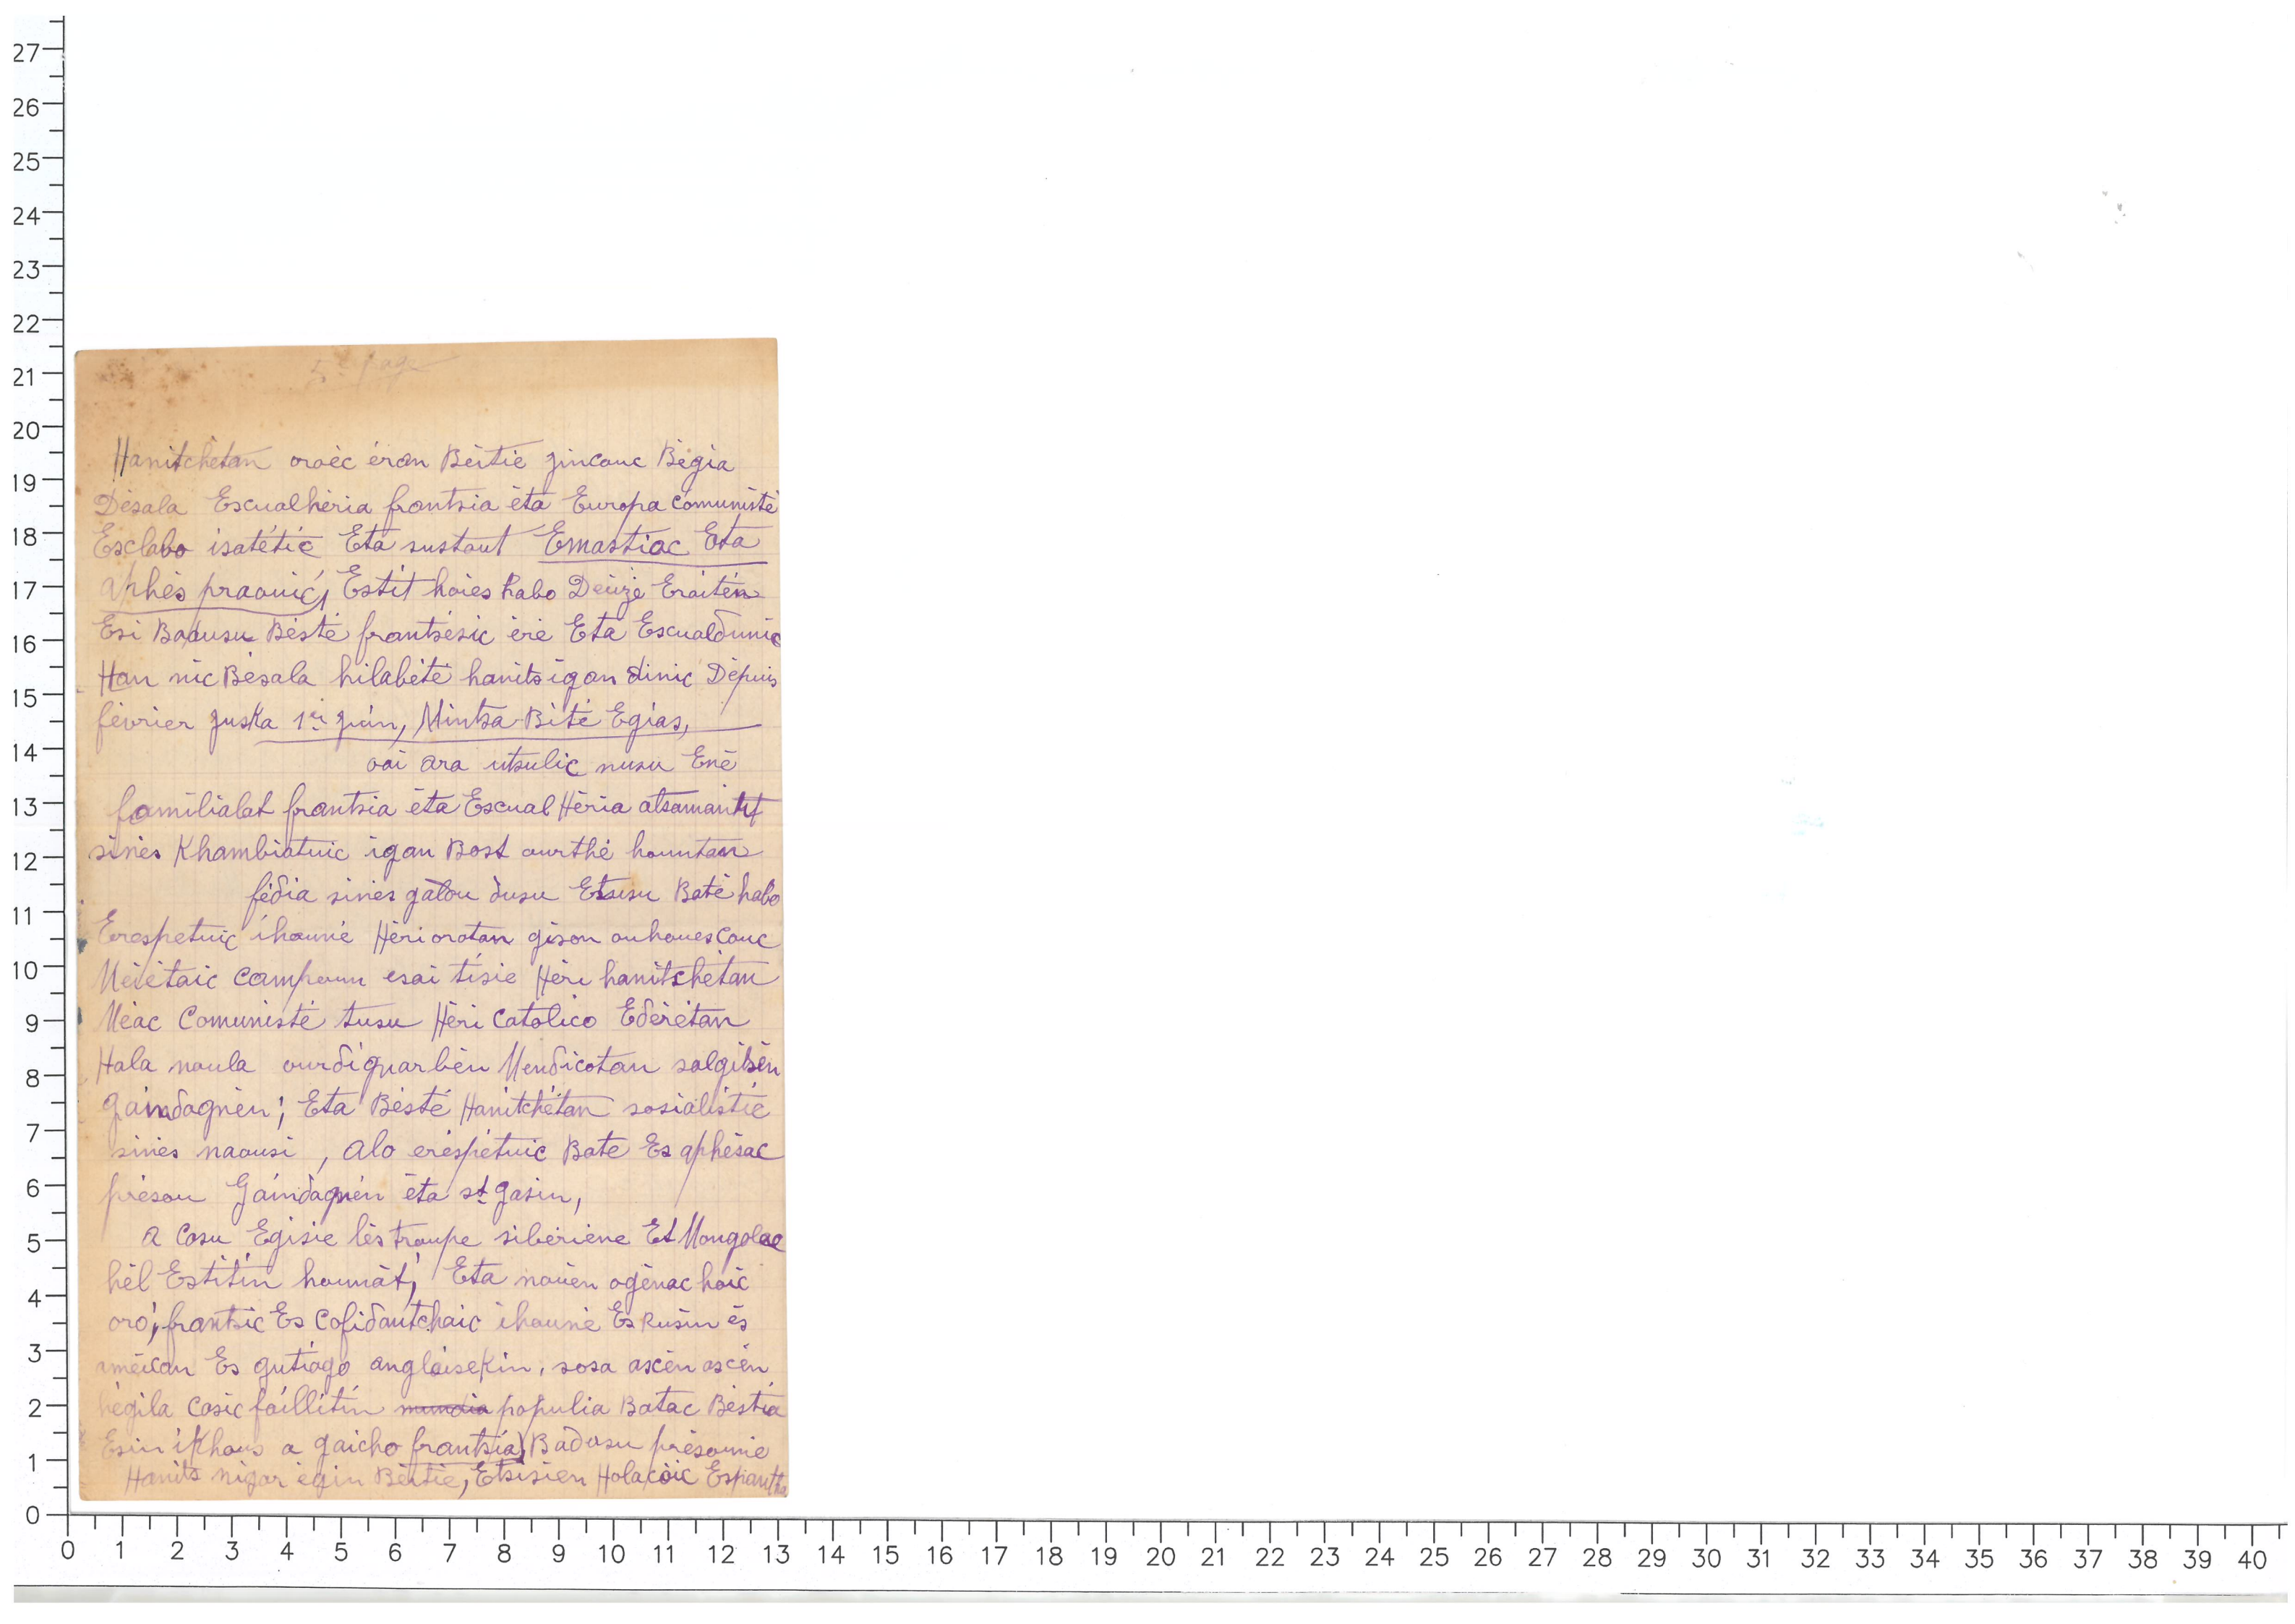 5e page
Hanitchétan oroèc éran Béitié jincouc Bégia
Désala Escualhéria frantsia éta Europa comunisté
Esclabo isatétic Eta sustout Emastiac Eta
aphés praouic, Estit haiés habo Deuzé Eraitén
Esi Badusu Bésté frantsésic éré Eta Escualdunic
Han nic Bésala hilabété hanits igan dinic Dépuis
février juska 1er juin, Mintsa Bité Egias,
oai ara utsulic nusu Ené
familialat frantsia éta Escual Héria atsamaintut
sinés Khambiatuic igan Bost ourthé hountan
fédia sinés galou dusu Etsusu Baté habo
Erespetuic ihouné Héri orotan gison onhouescouc
Méiétaic campoun esai tisié Héri hanitchétan
Méac Comunisté tusu Héri Catolico Edérétan
Hala noula ourdiguarbén Mendicotan salgisén
gaindagnén; Eta Bésté Hanitchétan sosialistié
sinés naousi, alo eréspétuic Bate Es aphésac
présou Gaindagnén éta st gasin,
a Cosu Egisié lés troupe sibériéne Et Mongolae
hél Estitin hounat, Eta nouén ogénac haic
oro, frantsic Es Cofidantchaic ihouné Es Rusin és
américan Es gutiago angloisekin, sosa ascén ascén
hégila Cosic faillitin mundia populia Batac Béstia
Esin ikhous a gaicho frantsia, Badusu présounié
Hanits nigar égin Béitié, Etsisien Holacoic Espantha
27 26 25 24 23 22 21 20 19 18 17 16 15 14 13 12 11 10 9 8 7 6 5 4 3 2 1 0
0 1 2 3 4 5 6 7 8 9 10 11 12 13 14 15 16 17 18 19 20 21 22 23 24 25 26 27 28 29 30 31 32 33 34 35 36 37 38 39 40